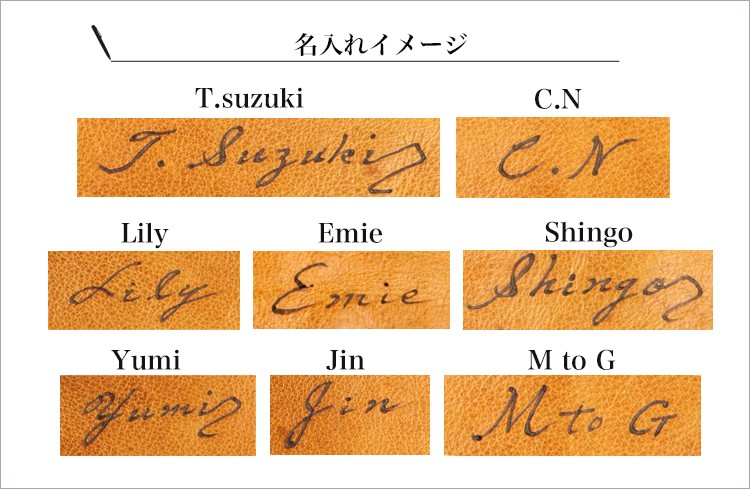 名入れイメージ
T.suzuki
C.N
T. Suzuki
C.N
Lily
Emie
Shingo
Lily
Emie
Shingo
Yumi
Jin
M to G
Yumi
Jin
M to G